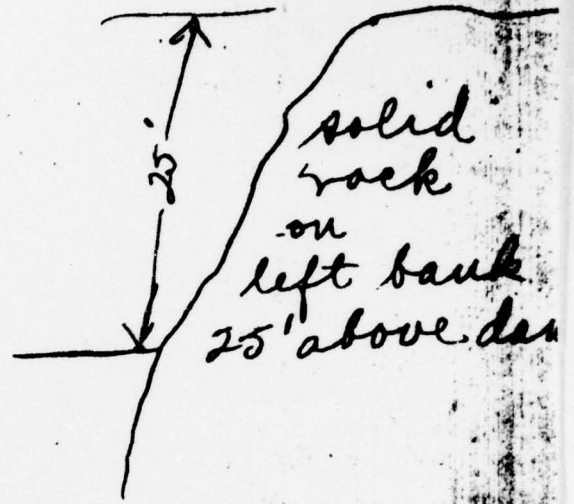 25'
solid
rock
on
left bank
25' above